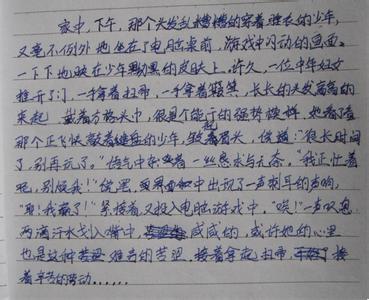 家中，下午，那个头发乱糟糟的穿着睡衣的少年，
又毫不例外地坐在了电脑桌前，游戏中闪动的画面
一下下地映在少年黝黑的皮肤上，许久，一位中年妇女
推开了门，一手拿着扫帚，一手拿着，长长的头发高高的
束起，戴着方格头巾，很是个能干的强势模样，她看了看
那个正飞快敲着键盘的少年，皱起着眉头，说道："很长时间
了，别再玩了。"语气中带着一丝恳求与无奈。"我正忙着
呢，别烦我！"说罢，中出现了一声刺耳的声响，
"耶！我赢了！"紧接着又投入电脑游戏中，"唉！"一声叹息
两滴汗水划入嘴中，咸咸的，或许她的心里
也是这种难言的苦涩，接着拿起扫帚，接
着辛苦的劳动……